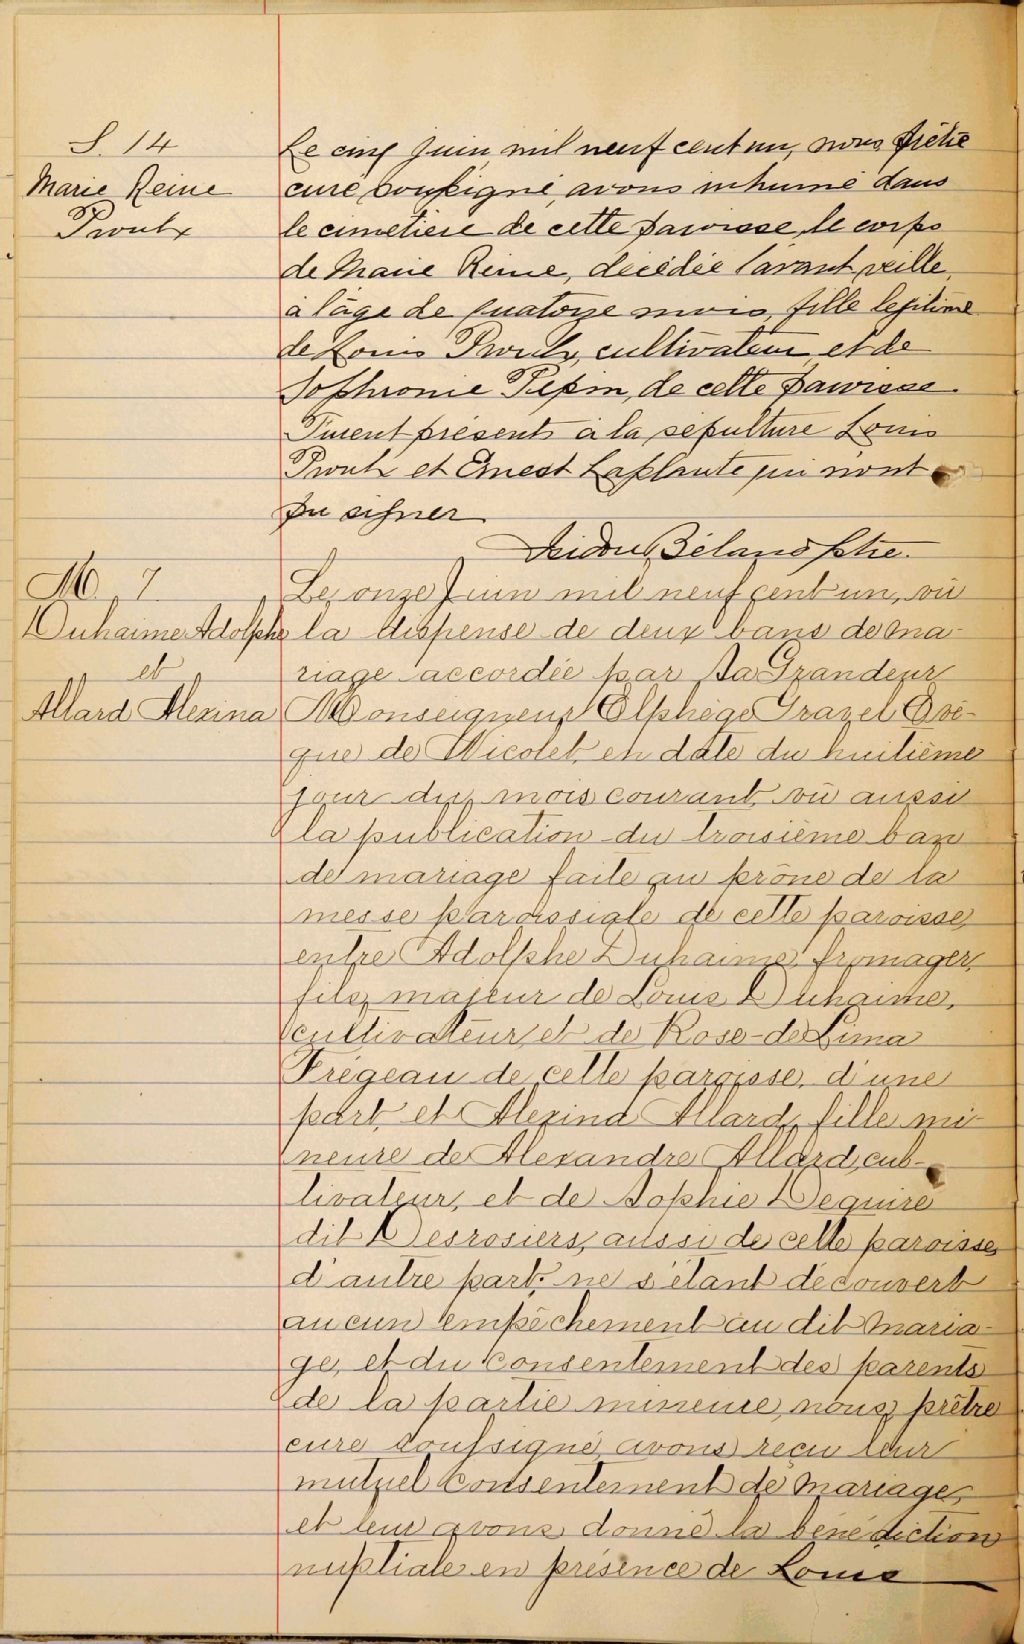 S. 14
Marie Reine
Proulx
Le cinq juin mil neuf cent un, nous prêtre
curé soussigné, avons inhumé dans
le cimetière de cette paroisse, le corps
de Marie Reine, décédée l'avant veille,
à l'âge de quatorze mois, fille legitime
de Louis Proulx, cultivateur, et de
Sophronie Pepin, de cette paroisse.
Furent présents à la sépulture Louis
Proulx et Ernest Laplante qui n'ont
pu signer
Isidore Béland ptre.
M. 7
Duhaime Adolphe
et
Allard Alexina
Le onze Juin mil neuf cent un, vû
la dispense de deux bans de ma-
riage accordée par Sa Grandeur
Monseigneur Elphège Gravel Evê-
que de Nicolet, en date du huitième
jour du mois courant, vû aussi
la publication du troisième ban
de mariage faite au prône de la
messe paroissiale de cette paroisse,
entre Adolphe Duhaime, fromager,
fils majeur de Louis Duhaime,
cultivateur, et de Rose-de Lima
Frégeau de cette paroisse, d'une
part, et Alexina Allard, fille mi-
neure de Alexandre Allard, cul-
tivateur, et de Sophie Deguire
dit Desrosiers, aussi de cette paroisse,
d'autre part; ne s'étant découvert
aucun empêchement au dit maria-
ge, et du consentement des parents
de la partie mineure, nous, prêtre
curé soussigné, avons reçu leur
mutuel consentement de mariage,
et leur avons donné la bénédiction
nuptiale en présence de Louis